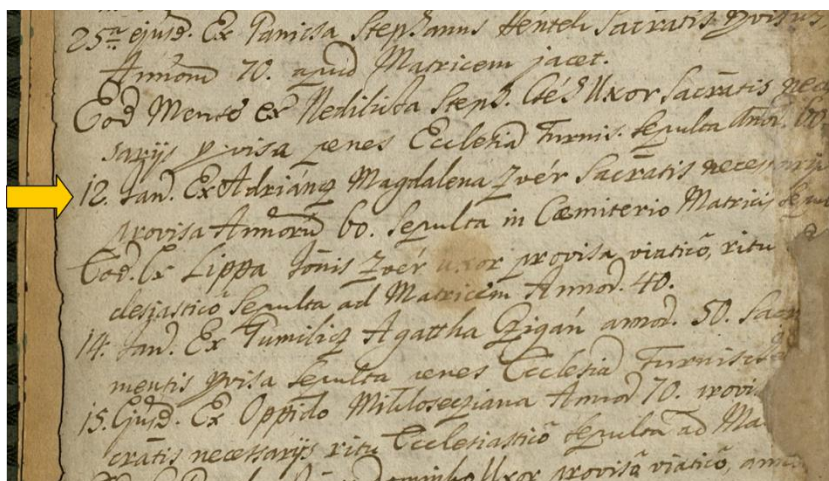 25ta ejusd. Ex Panicsa Stephanus Hentel Sacratis pvisus,
Annoru 70. apud Matricem jacet.
Eod Mense ex Nediliscsa Steph. Uxor Sacratis nec
sarijs pvisa penes Ecclesia Turnis. sepulta Anor. 60
12. Jan. Ex Adriáncz Magdalena Zvér Sacratis necessarijs
provisa Annoru 60. Sepulta in Cæmiterio Matricis
Eod. Ex Lippa Joñis Zvér Uxor provisa viaticô, ritu
clesiasticô Sepulta ad Matricem Annor. 40.
14. Jan. Ex Tumilicz Agattha Czigán annor. 50. Sacra
mentis pvisa Sepulta penes Ecclesia Turnisch
15. Ejusd. Ex Oppido Annor 70. provi
cratis necessarijs ritu Ecclesiasticô Sepulta ad Ma
Uxor provisa viaticô, ann